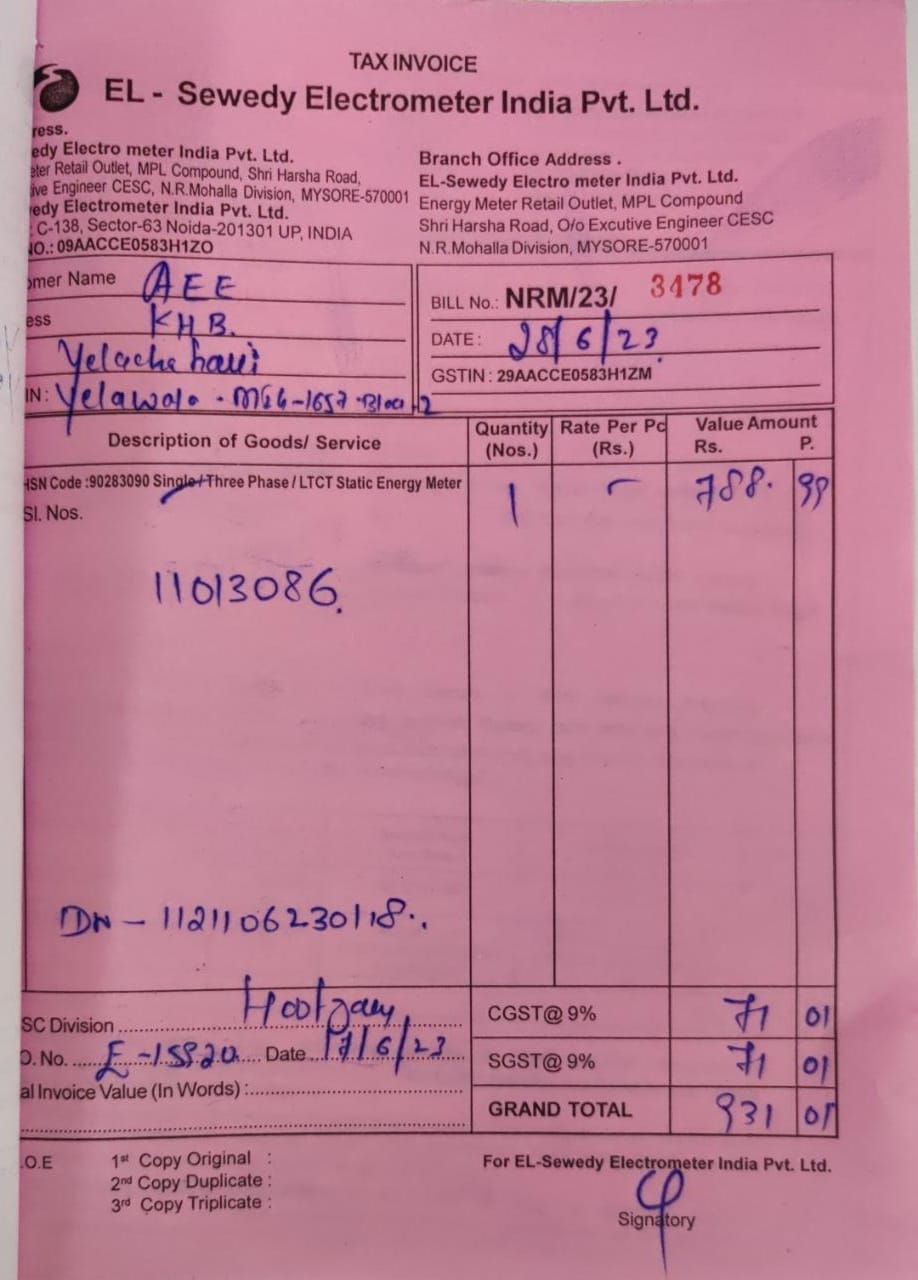 TAX INVOICE
EL - Sewedy Electrometer India Pvt. Ltd.
ress.
edy Electro meter India Pvt. Ltd.
eter Retail Outlet, MPL Compound, Shri Harsha Road,
ive Engineer CESC, N.R.Mohalla Division, MYSORE-570001
edy Electrometer India Pvt. Ltd.
: C-138, Sector-63 Noida-201301 UP, INDIA
NO.: 09AACCE0583H1ZO
Branch Office Address .
EL-Sewedy Electro meter India Pvt. Ltd.
Energy Meter Retail Outlet, MPL Compound
Shri Harsha Road, O/o Excutive Engineer CESC
N.R.Mohalla Division, MYSORE-570001
omer Name AEE
ess KHB.
IN: Yelawala
BILL No.: NRM/23/ 3478
DATE : 28/6/23
GSTIN : 29AACCE0583H1ZM
Description of Goods/ Service Quantity (Nos.) Rate Per Pc (Rs.) Value Amount Rs. P.
HSN Code :90283090 Single / Three Phase / LTCT Static Energy Meter 1 - 788. 99
Sl. Nos.
11013086.
DN - 1121106230118.
SC Division
CGST@ 9% 71 01
O. No. Date 17/6/23
SGST@ 9% 71 01
al Invoice Value (In Words) :
GRAND TOTAL 931 01
.O.E
1st Copy Original :
2nd Copy Duplicate :
3rd Copy Triplicate :
For EL-Sewedy Electrometer India Pvt. Ltd.
Signatory